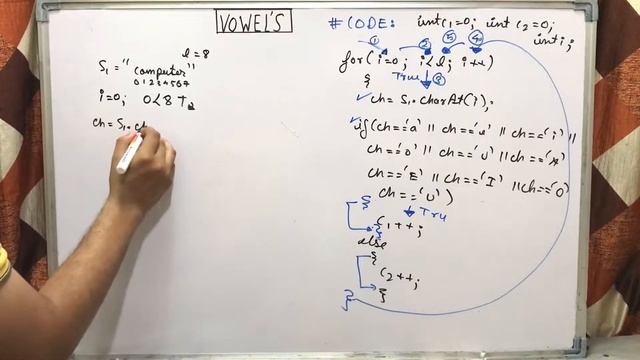 VOWEL'S
l = 8
S1 = "Computer"
0 1 2 3 4 5 6 7
i=0; 0<8 T
ch = S1. ch
# CODE: int c1=0; int c2=0;
int i;
① ② ⑤ ④
for(i=0; i<l; i++)
{ True ③
ch = S1. charAt(i);
if(ch=='a' || ch=='e' || ch=='i' ||
ch=='o' || ch=='u' || ch=='A' ||
ch=='E' || ch=='I' || ch=='O' ||
ch=='U')
{ True
c1++;
}
else
{
c2++;
}
}